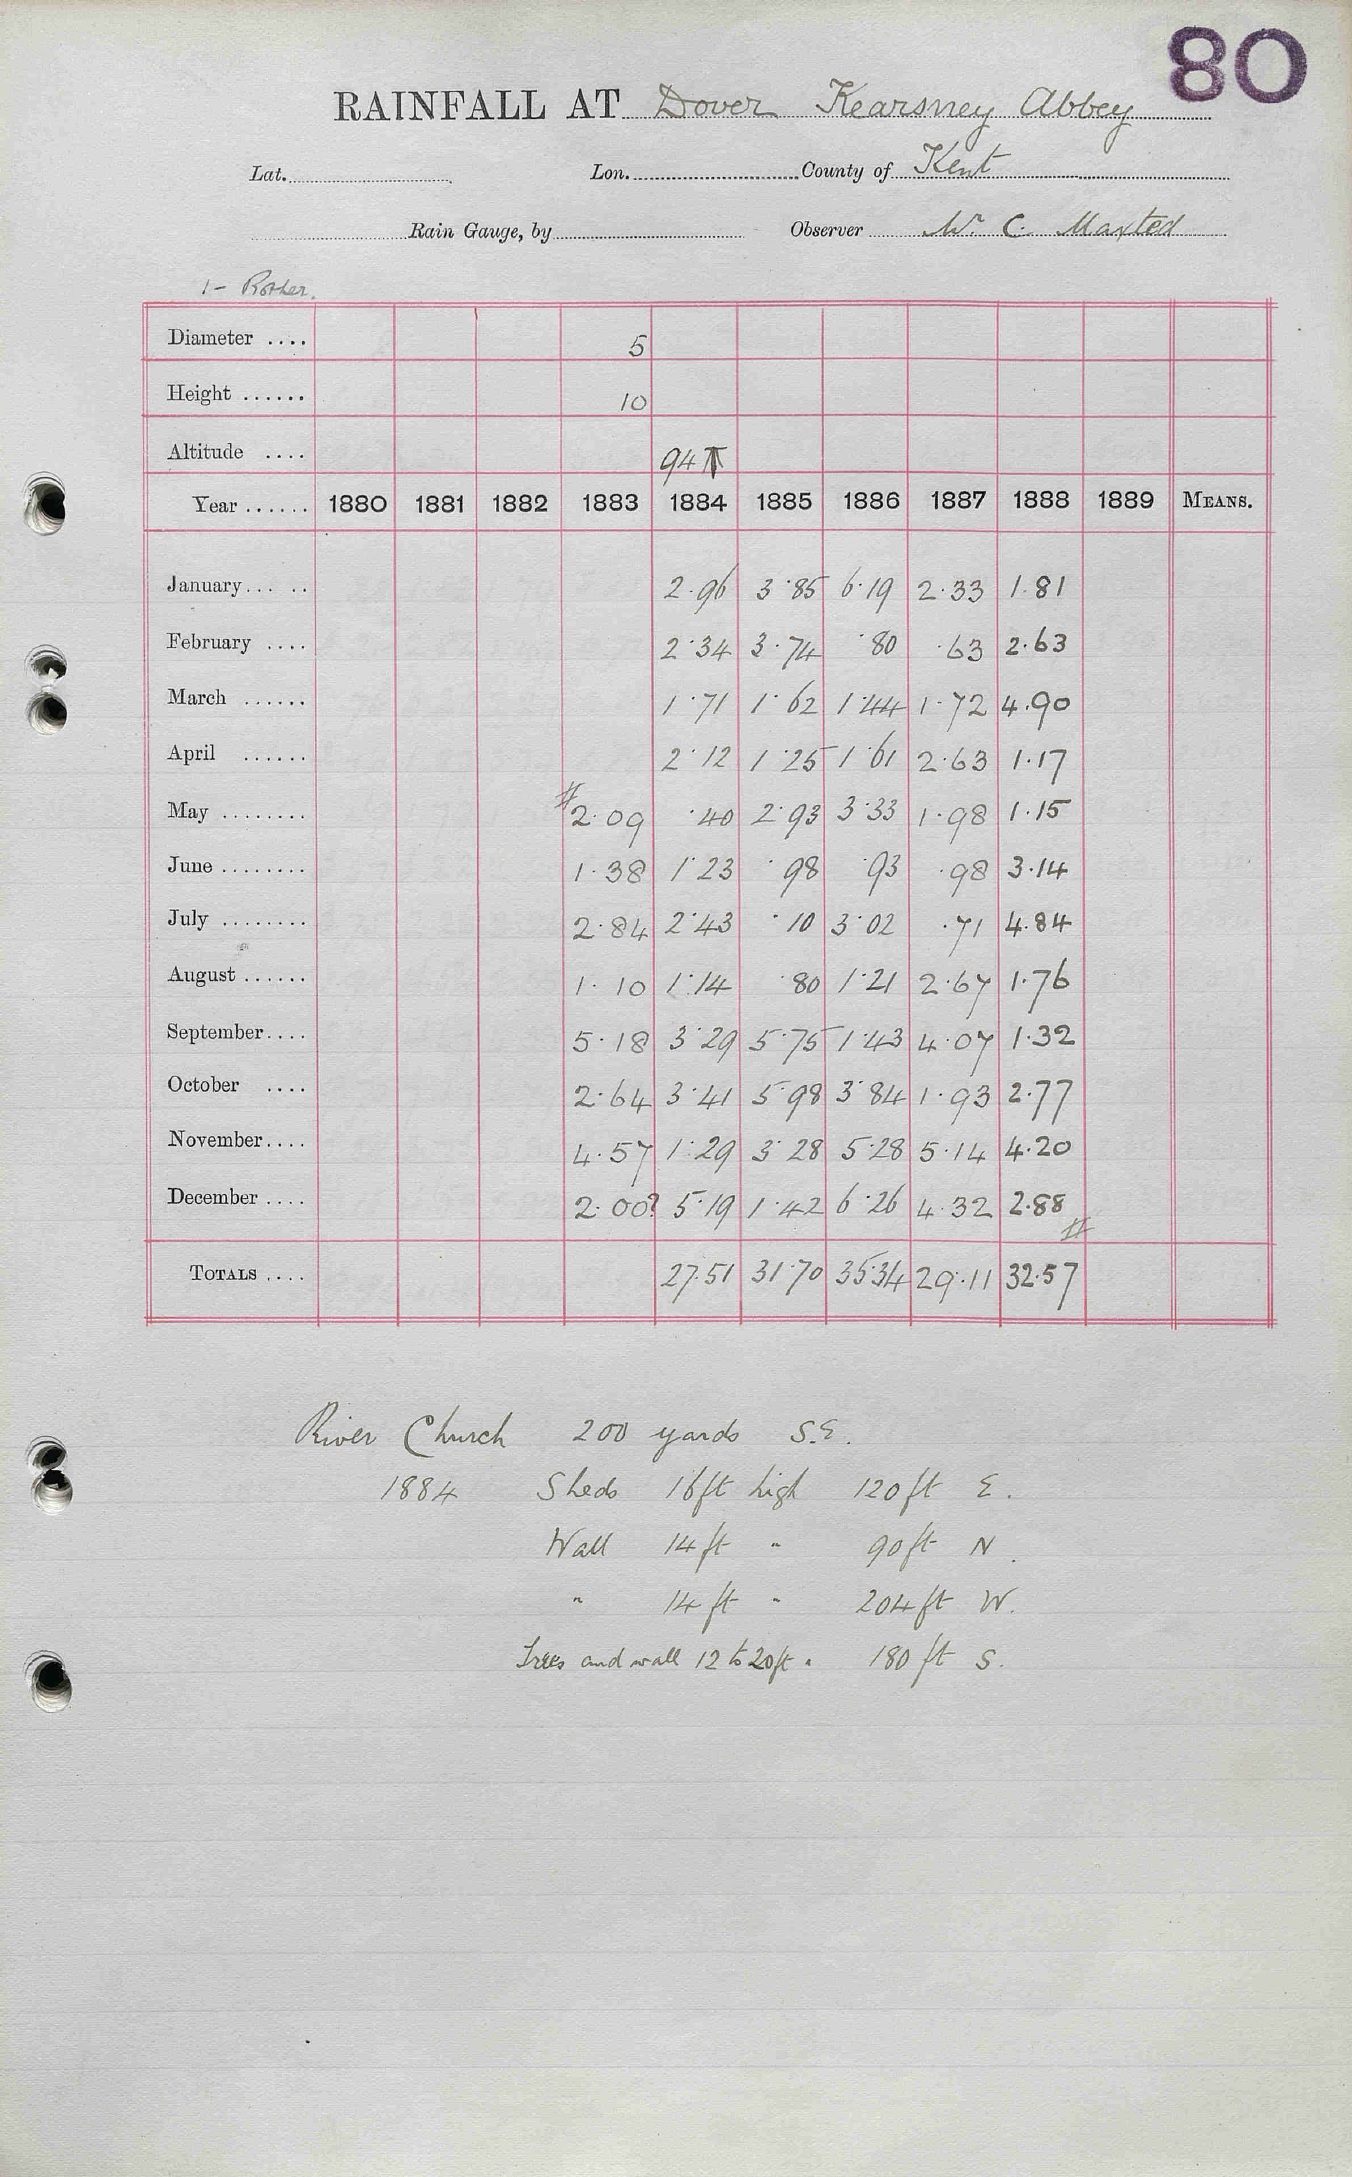 80
RAINFALL AT Dover Kearsney Abbey
Lat. Lon. County of Kent
Rain Gauge, by Observer Mr C. Maxted
1- Rother.
Diameter .... 5
Height ...... 10
Altitude .... 94
Year ...... 1880 1881 1882 1883 1884 1885 1886 1887 1888 1889 MEANS.
January... .. 2.96 3.85 6.19 2.33 1.81
February .... 2.34 3.74 .80 .63 2.63
March ...... 1.71 1.62 1.44 1.72 4.90
April ...... 2.12 1.25 1.61 2.63 1.17
May ........ 2.09 .40 2.93 3.33 1.98 1.15
June ........ 1.38 1.23 .98 .93 .98 3.14
July ........ 2.84 2.43 .10 3.02 .71 4.84
August ...... 1.10 1.14 .80 1.21 2.67 1.76
September.... 5.18 3.29 5.75 1.43 4.07 1.32
October .... 2.64 3.41 5.98 3.84 1.93 2.77
November.... 4.57 1.29 3.28 5.28 5.14 4.20
December .... 2.00? 5.19 1.42 6.26 4.32 2.88
TOTALS .... 27.51 31.70 35.34 29.11 32.57
River Church 200 yards S.E.
1884 Sheds 16ft high 120ft E.
Wall 14ft " 90ft N.
" 14ft " 204ft W.
Trees and wall 12 to 20ft " 180ft S.